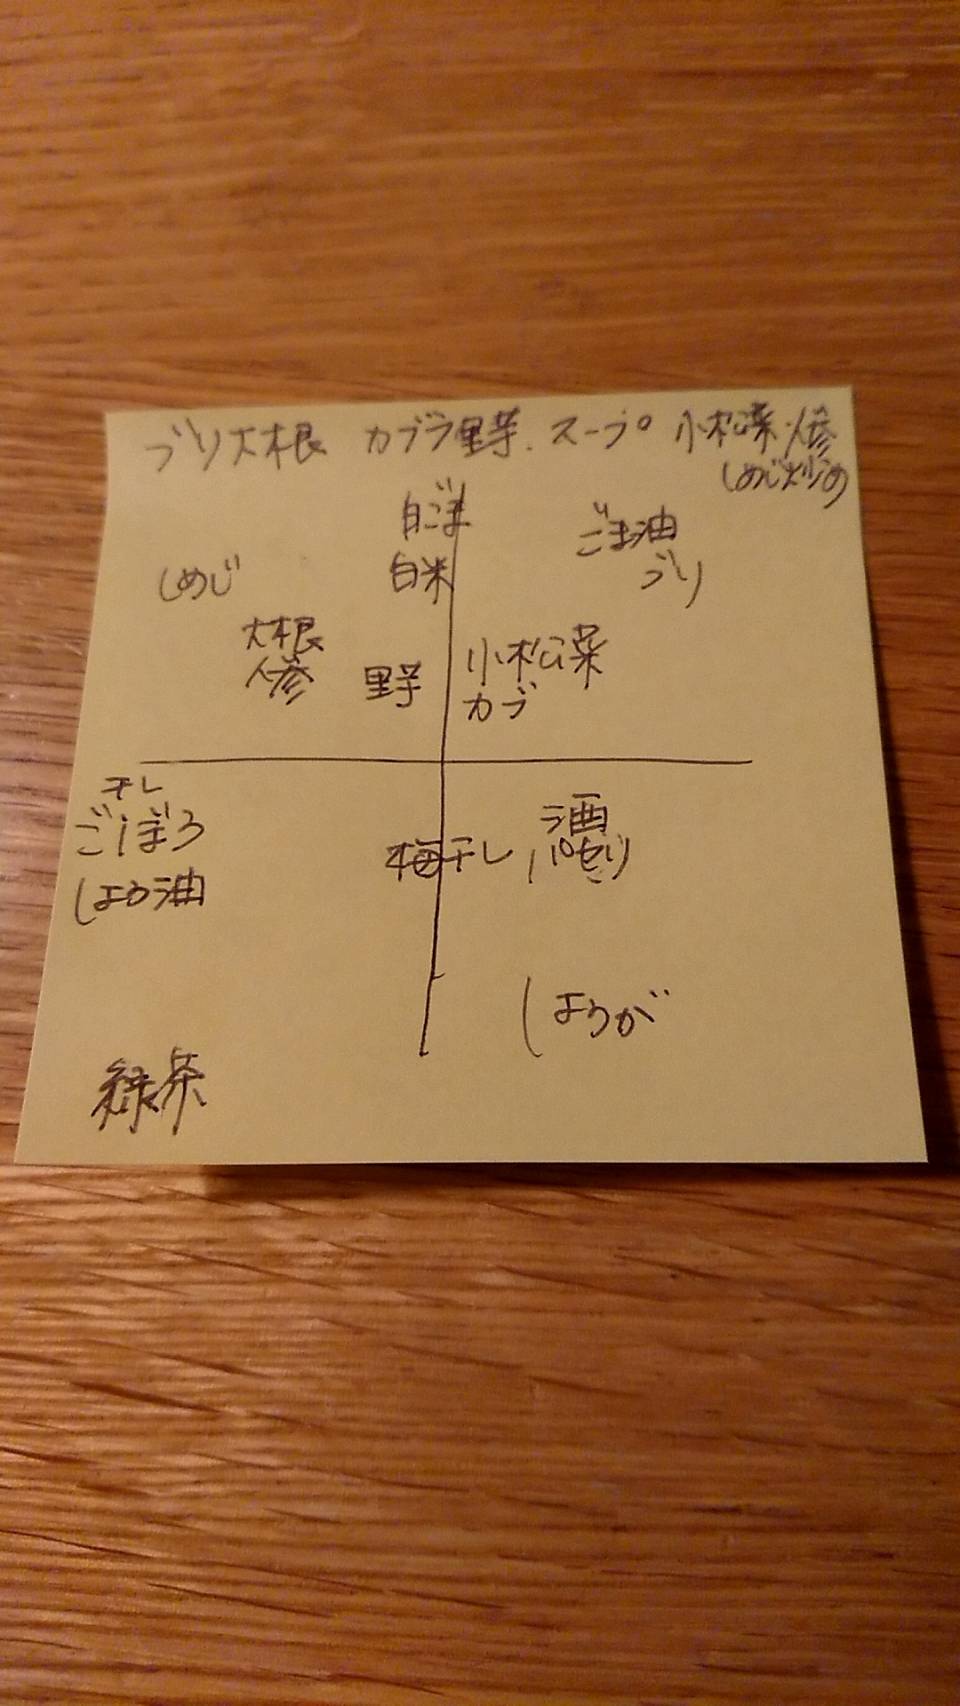 ブリ大根 カブラ里芋.スープ 小松菜.人参
しめじ炒め
白ごま
白米
ごま油
ブリ
しめじ
大根
人参
里芋
小松菜
カブ
干し
ごぼう
しょう油
梅干し
酒
パセリ
しょうが
緑茶